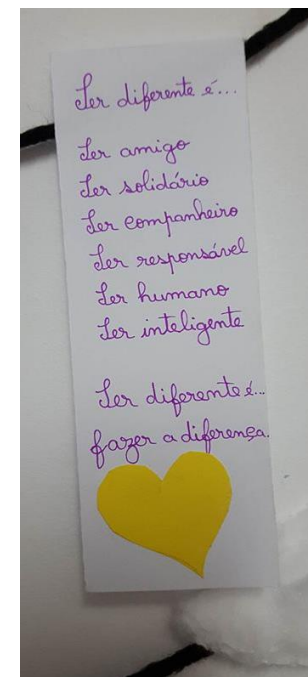 Ser diferente é...
Ser amigo
Ser solidário
Ser companheiro
Ser responsável
Ser humano
Ser inteligente
Ser diferente é...
fazer a diferença.